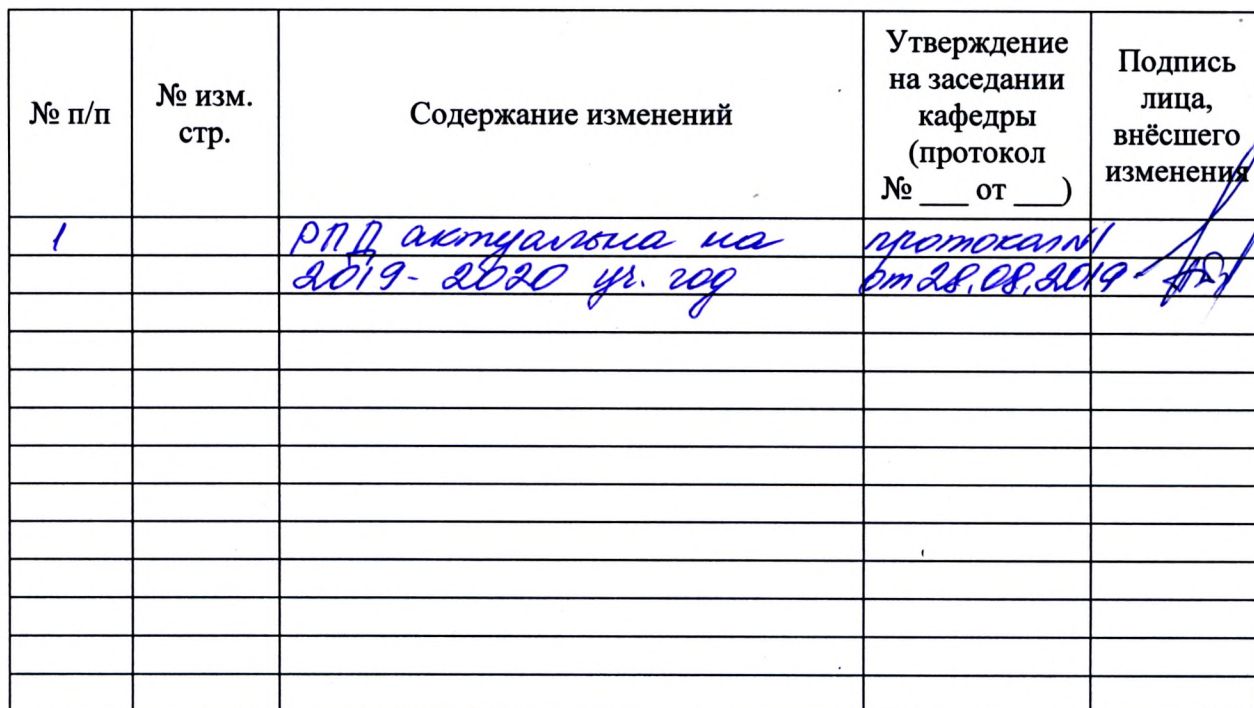 № п/п
№ изм.
стр.
Содержание изменений
Утверждение
на заседании
кафедры
(протокол
№ ___ от ___)
Подпись
лица,
внёсшего
изменения
1
РПД актуальна на
протокол №1
2019- 2020 уч. год
от 28.08.2019